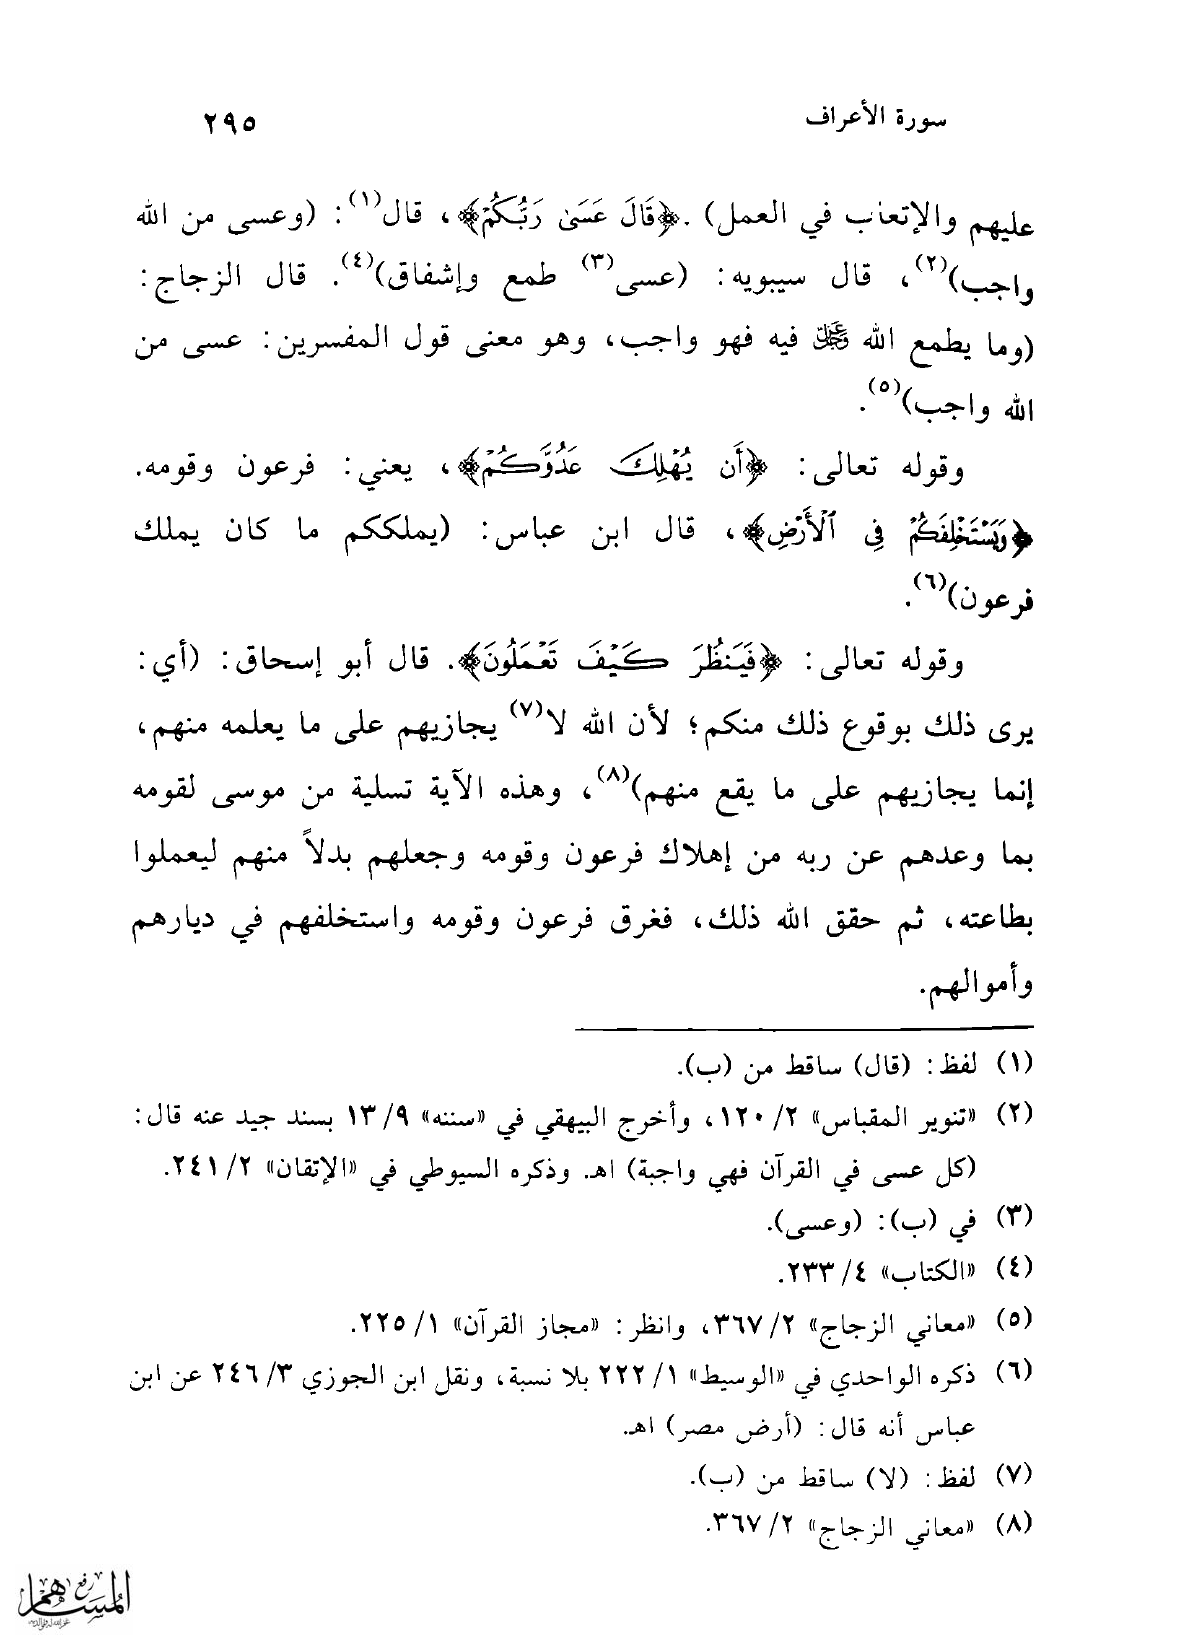 سورة الأعراف ٢٩٥
عليهم والإتعاب في العمل) .﴿قَالَ عَسَىٰ رَبُّكُمْ﴾، قال(١): (وعسى من الله
واجب)(٢)، قال سيبويه: (عسى(٣) طمع وإشفاق)(٤). قال الزجاج:
(وما يطمع الله عَزَّ وَجَلَّ فيه فهو واجب، وهو معنى قول المفسرين: عسى من
الله واجب)(٥).
وقوله تعالى: ﴿أَن يُهْلِكَ عَدُوَّكُمْ﴾، يعني: فرعون وقومه.
﴿وَيَسْتَخْلِفَكُمْ فِي ٱلْأَرْضِ﴾، قال ابن عباس: (يملككم ما كان يملك
فرعون)(٦).
وقوله تعالى: ﴿فَيَنظُرَ كَيْفَ تَعْمَلُونَ﴾. قال أبو إسحاق: (أي:
يرى ذلك بوقوع ذلك منكم؛ لأن الله لا(٧) يجازيهم على ما يعلمه منهم،
إنما يجازيهم على ما يقع منهم)(٨)، وهذه الآية تسلية من موسى لقومه
بما وعدهم عن ربه من إهلاك فرعون وقومه وجعلهم بدلاً منهم ليعملوا
بطاعته، ثم حقق الله ذلك، فغرق فرعون وقومه واستخلفهم في ديارهم
وأموالهم.
(١) لفظ: (قال) ساقط من (ب).
(٢) «تنوير المقباس» ٢/ ١٢٠، وأخرج البيهقي في «سننه» ٩/ ١٣ بسند جيد عنه قال:
(كل عسى في القرآن فهي واجبة) اهـ. وذكره السيوطي في «الإتقان» ٢/ ٢٤١.
(٣) في (ب): (وعسى).
(٤) «الكتاب» ٤/ ٢٣٣.
(٥) «معاني الزجاج» ٢/ ٣٦٧، وانظر: «مجاز القرآن» ١/ ٢٢٥.
(٦) ذكره الواحدي في «الوسيط» ١/ ٢٢٢ بلا نسبة، ونقل ابن الجوزي ٣/ ٢٤٦ عن ابن
عباس أنه قال: (أرض مصر) اهـ.
(٧) لفظ: (لا) ساقط من (ب).
(٨) «معاني الزجاج» ٢/ ٣٦٧.
رفع
المساهم